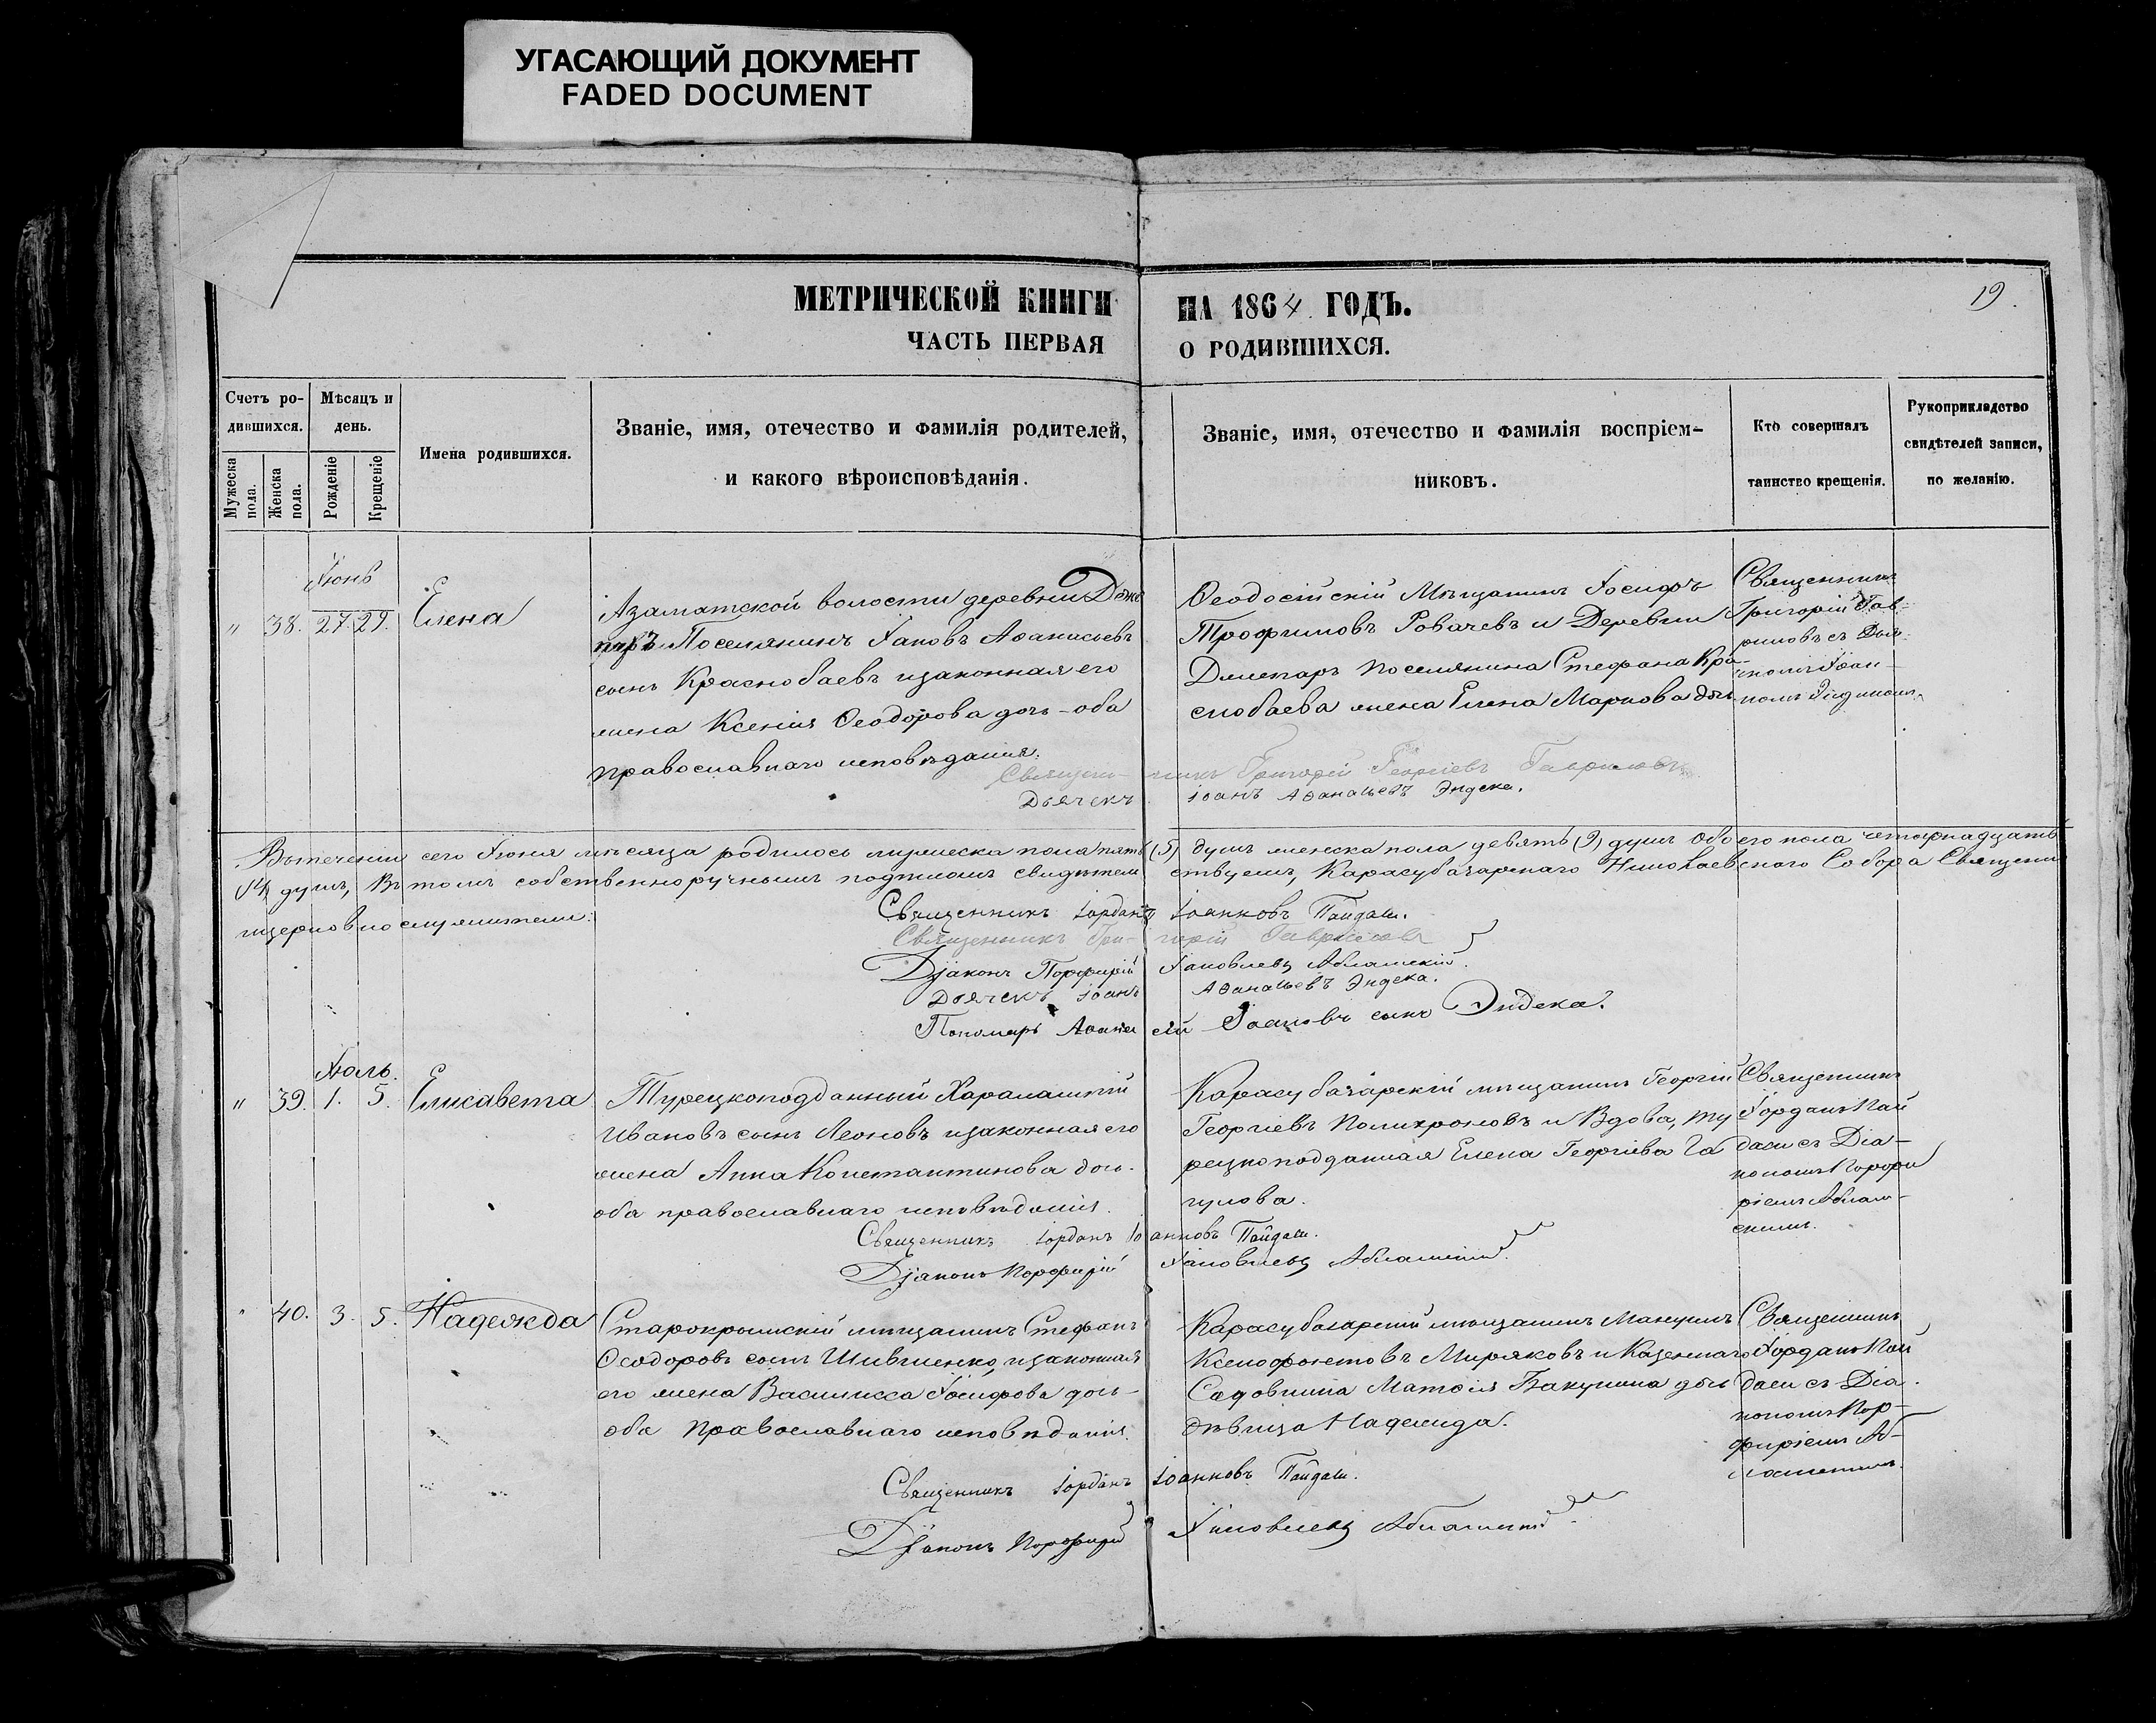 УГАСАЮЩИЙ ДОКУМЕНТ
FADED DOCUMENT
МЕТРИЧЕСКОЙ КНИГИ НА 1864 ГОДЪ.
19.
ЧАСТЬ ПЕРВАЯ О РОДИВШИХСЯ.
Счетъ ро-
дившихся.
Мужеска пола.
Женска пола.
Мѣсяцъ и
день.
Рожденіе
Крещеніе
Имена родившихся.
Званіе, имя, отечество и фамилія родителей,
и какого вѣроисповѣданія.
Званіе, имя, отечество и фамилія воспріем-
никовъ.
Кто совершалъ
таинство крещенія.
Рукоприкладство
свидѣтелей записи,
по желанію.
Іюнь
" 38. 27. 29. Елена
Азаматской волости деревни
Поселянинъ Іаковъ Аѳанасьевъ
сынъ Краснобаевъ изаконная его
жена Ксенія Ѳеодорова дочь - оба
православнаго исповѣданія.
Ѳеодосійскій Мѣщанинъ Іосифъ
Трофимовъ Ровачевъ и Деревни
поселянина Стефана Кра-
снобаева жена Елена Маркова дочь
Священникъ
Григорій Гав-
риловъ съ Дья-
чкомъ Іоан-
номъ
Священникъ Григорій Георгіевъ Гавриловъ
Дьячекъ іоанъ Аѳанасьевъ Эндека.
Вътеченіи сего Іюня мѣсяца родилось мужеска пола пять (5) душъ женска пола девять (9) душъ обоего пола четырнадцать
(14) душъ, Въ томъ собственноручнымъ подписомъ свидѣтельствуемъ, Карасубазарскаго Николаевскаго Собора Священно
ицерковнослужители:
Священникъ іорданъ іоанновъ Пайдаси.
Священникъ Григорій Гавриловъ
Діаконъ Порфирій Іаковлевъ
Дьячекъ іоанъ Аѳанасьевъ Эндека.
Пономарь Аѳанасій Іоановъ сынъ Эндека.
Іюль.
" 39. 1. 5. Елисавета
Турецкоподданный Харалампій
Ивановъ сынъ Леоновъ изаконная его
жена Анна Константинова дочь.
оба православнаго исповѣданія.
Карасубазарскій мѣщанинъ Георгій
Георгіевъ Полихроновъ и Вдова, ту
рецкоподданная Елена Георгіева
Священникъ
Іорданъ Пай
даси съ Діа-
кономъ Порфи
ріемъ
Священникъ іорданъ іоанновъ Пайдаси.
Діаконъ Порфирій Іаковлевъ
" 40. 3. 5. Надежда
Старокрымскій мѣщанинъ Стефанъ
Ѳеодоровъ сынъ изаконная
его жена Василисса Іосифова дочь -
оба Православнаго исповѣданія.
Карасубазарскій мѣщанинъ Мануилъ
Ксенофонтовъ Миряковъ и Казеннаго
Садовника Матѳія Бакунина дочь
дѣвица Надежда.
Священникъ
Іорданъ Пай
даси съ Діа-
кономъ Пор-
фиріемъ
Священникъ іорданъ іоанновъ Пайдаси.
Діаконъ Порфирій Іаковлевъ